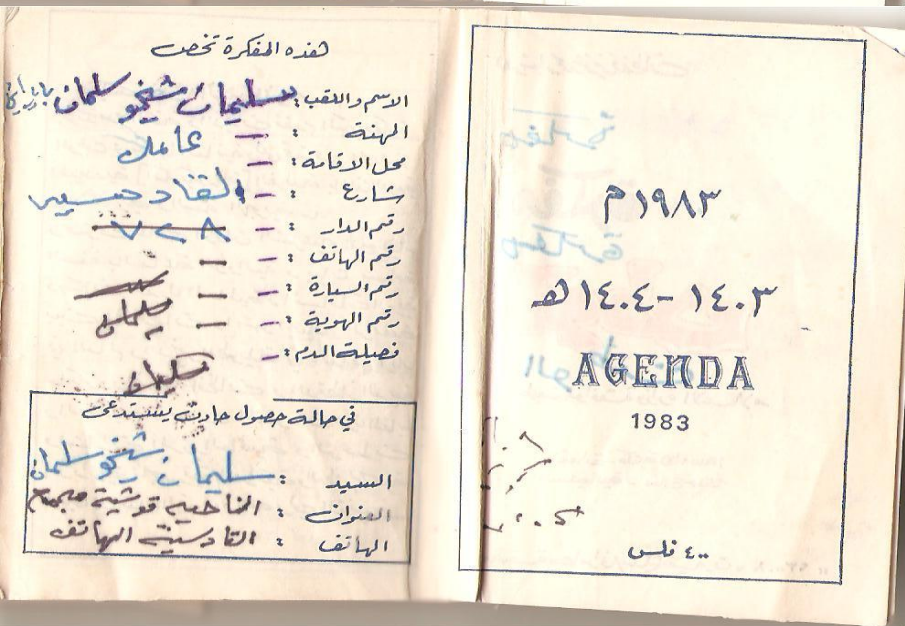 هذه المفكرة تخص
الاسم واللقب: سليمان شيخو سلمان
المهنة : — عامل
محل الاقامة: —
شارع : —
رقم الدار : — ٧٢٨
رقم الهاتف : — —
رقم السيارة : — —
رقم الهوية : — — سليمان
فصيلة الدم: —
سليمان
في حالة حصول حادث يستدعى
السيد : سليمان شيخو سلمان
العنوان : الناحيه قوشية مجمع
الهاتف : القادسية الهاتف
١٩٨٣م
١٤٠٣-١٤٠٤ه
AGENDA
1983
٤٠٠ فلس